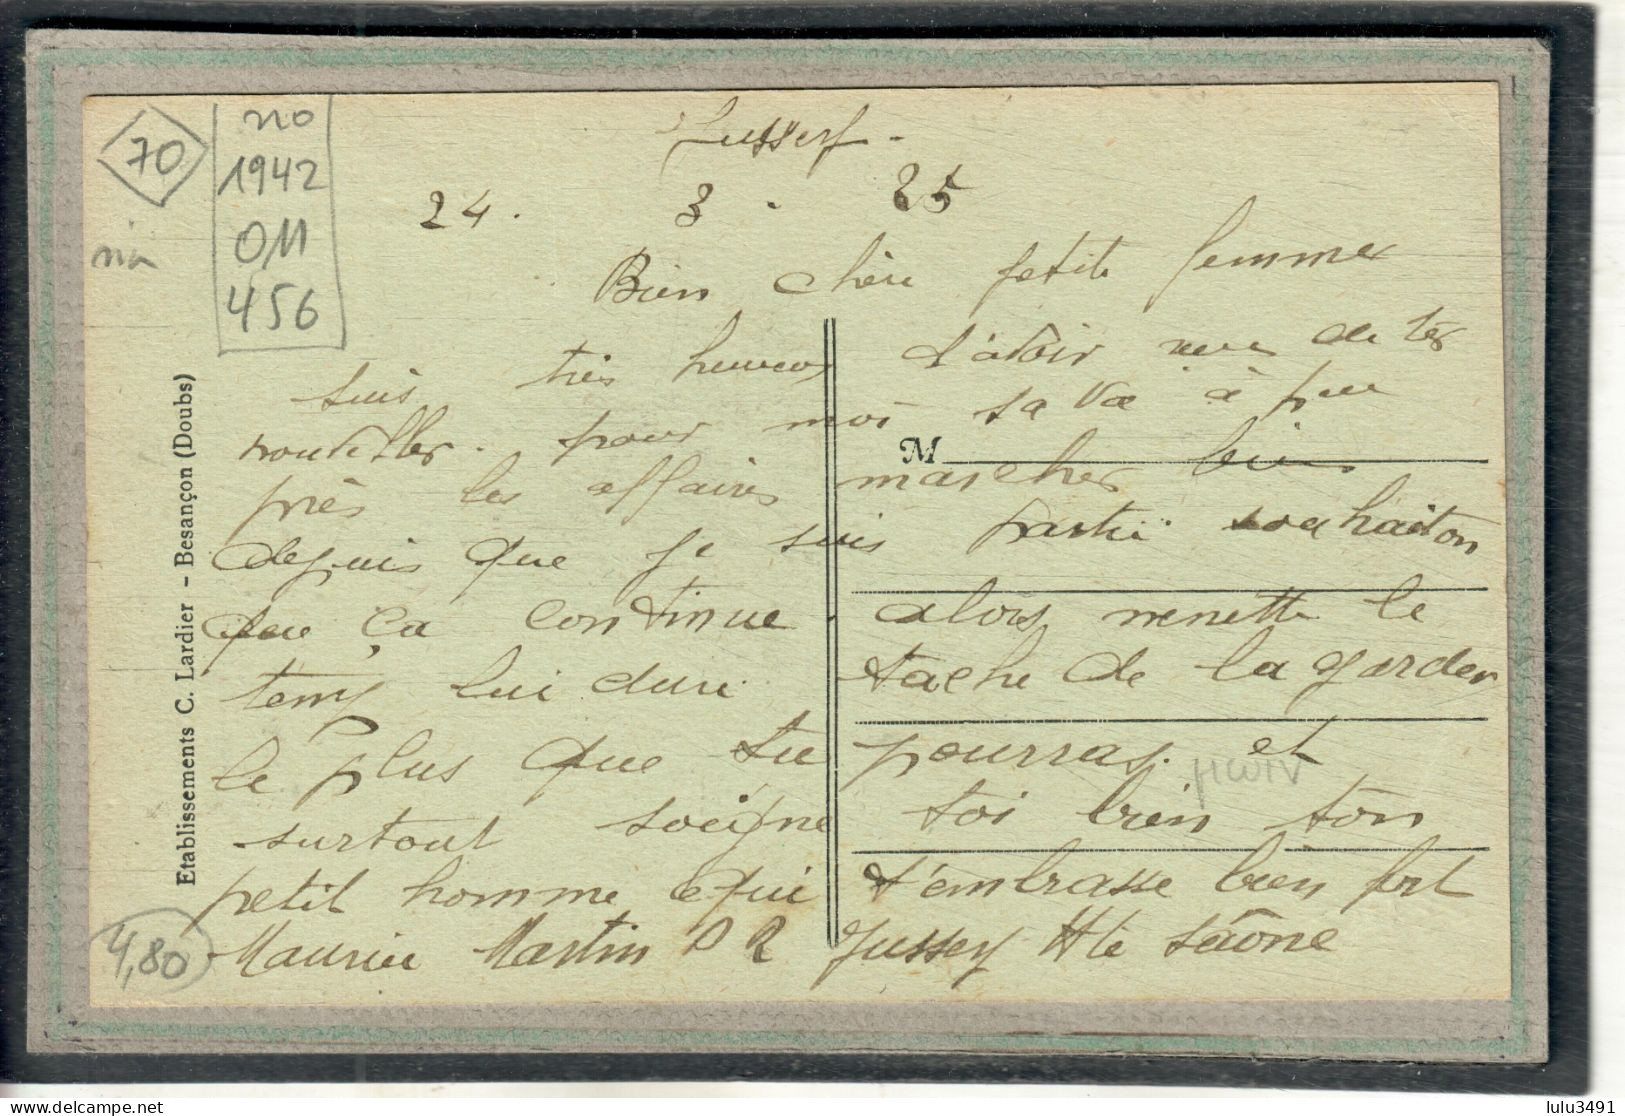 70
no
1942
011
456
4,80
Etablissements C. Lardier - Besançon (Doubs)
M
Jussey -
24 . 3 . 25
Bien chère petite femme
suis très heureux d'avoir de tes
nouvelles . pour moi sa va à peu
près les affaires marcher bien
depuis que je suis partii souhaiton
que ça continue . alors nenette le
temp lui dure tache de la garder
le plus que tu pourras. et
surtout soigne toi bien ton
petit homme qui t'embrasse bien fort
Maurice Martin P R Jussey Hte Saône
lulu3491